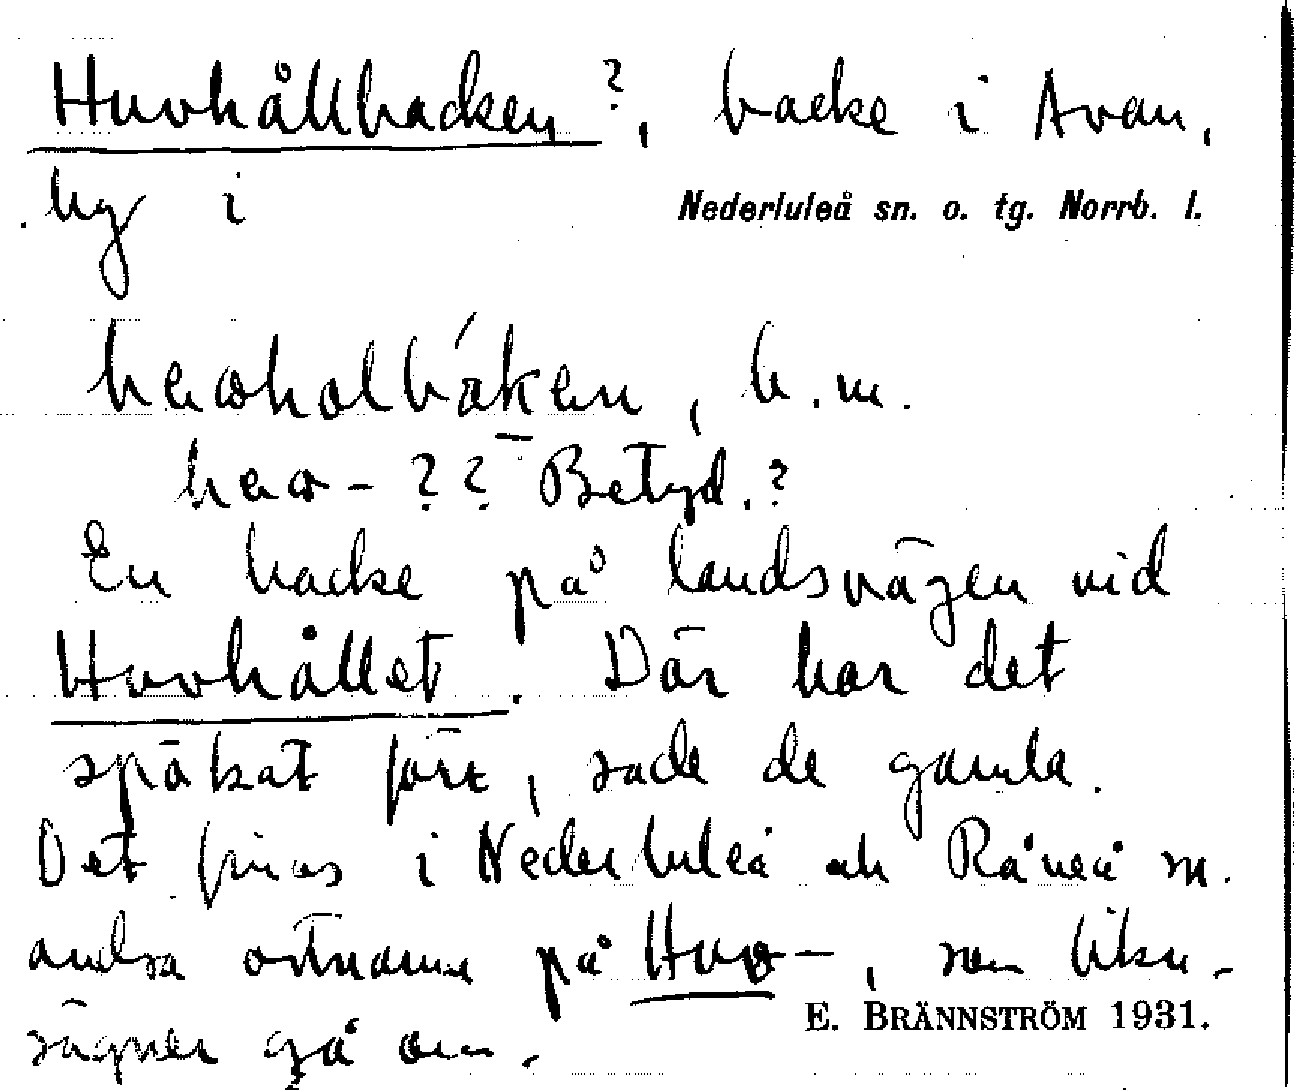 Huvhållbacken?, backe i Avan,
by i Nederluleå sn. o. tg. Norrb. l.
b. m.
?? Betyd.?
En backe på landsvägen vid
Huvhållet. Där har det
spökat förr, sade de gamla.
Det finns i Nederluleå och Råneå sn.
andra ortnamn på Huv-, som
sägner gå om.
E. BRÄNNSTRÖM 1931.